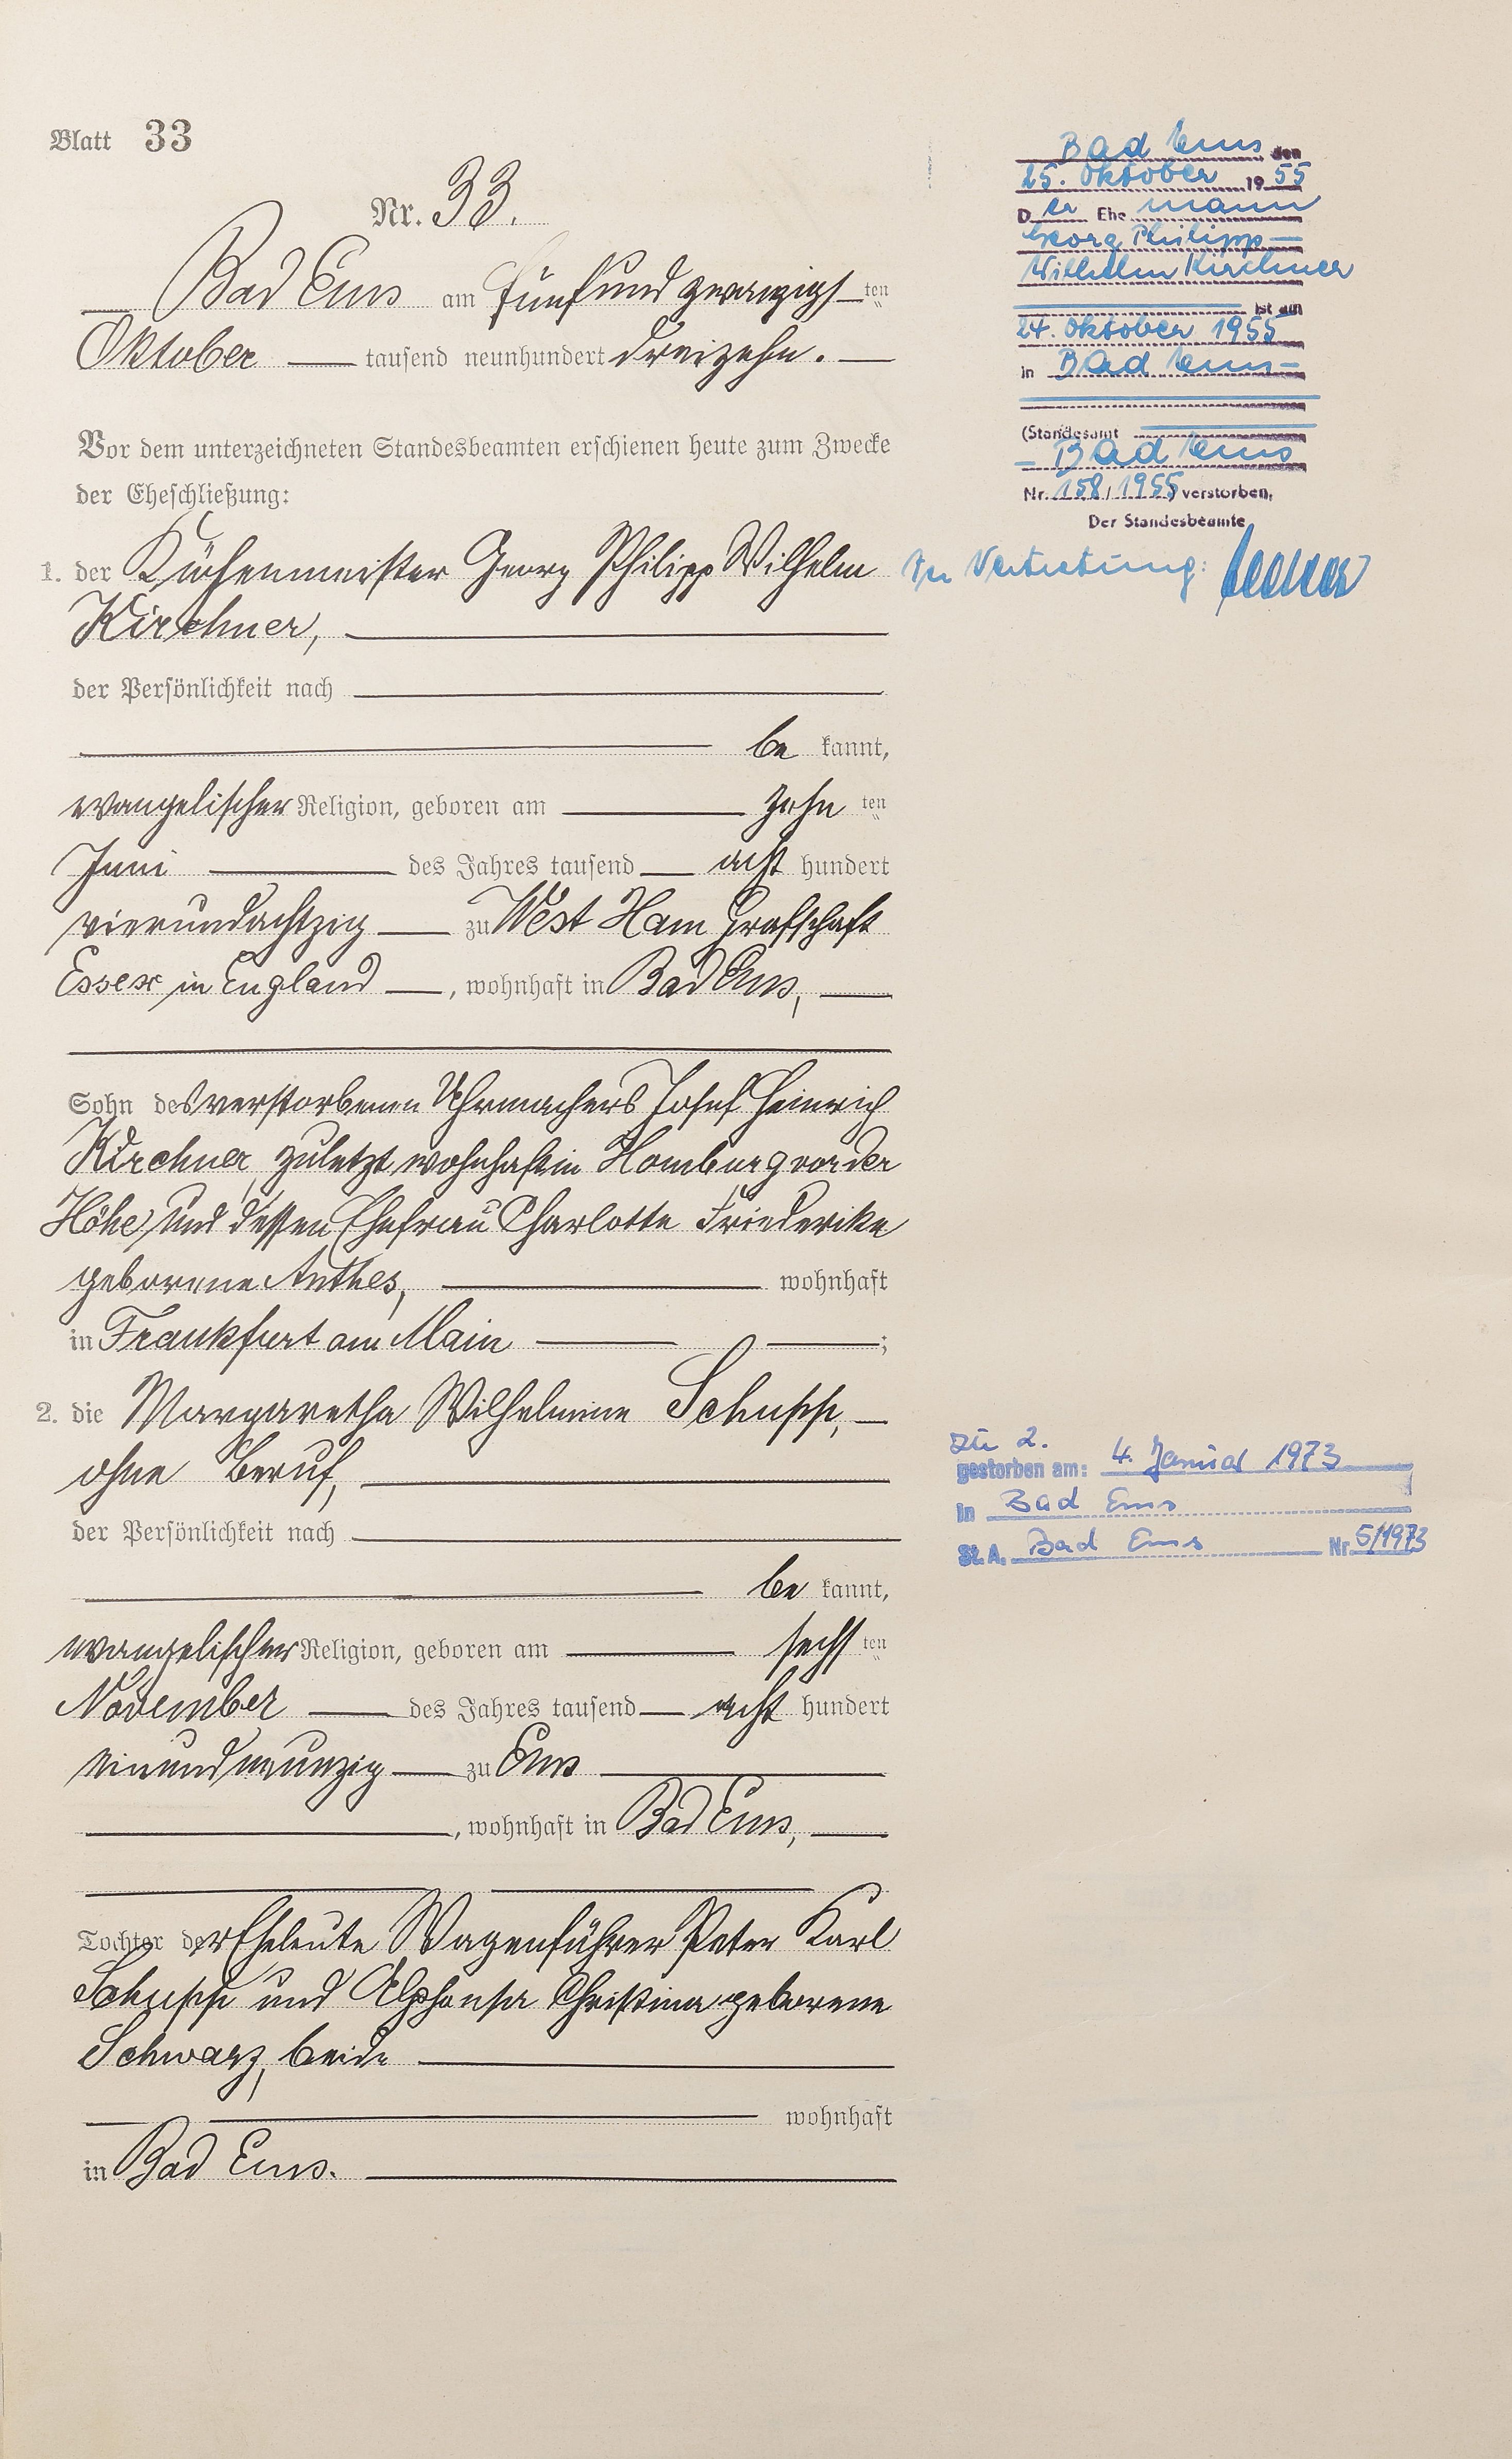 Blatt 33
Nr. 33.
Bad Ems am fünfundzwanzigsten
Oktober tausend neunhundert dreizehn.
Vor dem unterzeichneten Standesbeamten erschienen heute zum Zwecke
der Eheschließung:
1. der Küchenmeister Georg Philipp Wilhelm
Kirchner,
der Persönlichkeit nach
be kannt,
evangelischer Religion, geboren am zehn ten
Juni des Jahres tausend acht hundert
vierundachtzig zu West Ham Grafschaft
Essex in England, wohnhaft in Bad Ems,
Sohn des verstorbenen Uhrmachers Josef Heinrich
Kirchner, zuletzt wohnhaft in Homburg vor der
Höhe, und dessen Ehefrau Charlotte Friederike
geborene Anthes, wohnhaft
in Frankfurt am Main ;
2. die Margaretha Wilhelmine Schupp,
ohne Beruf,
der Persönlichkeit nach
be kannt,
evangelischer Religion, geboren am sechs ten
November des Jahres tausend acht hundert
einundneunzig zu Ems
, wohnhaft in Bad Ems,
Tochter der Eheleute Wagenführer Peter Karl
Schupp und Alphonsa Christina geborene
Schwarz, beide
wohnhaft
in Bad Ems.
Bad Ems den
25. Oktober 19 55
D er Ehe mann
Georg Philipp
Wilhelm Kirchner
ist am
24. Oktober 1955
in Bad Ems
(Standesamt
Bad Ems
Nr. 158/1955) verstorben.
Der Standesbeamte
In Vertretung:
zu 2.
gestorben am: 4. Januar 1973
in Bad Ems
St. A. Bad Ems Nr. 5/1973